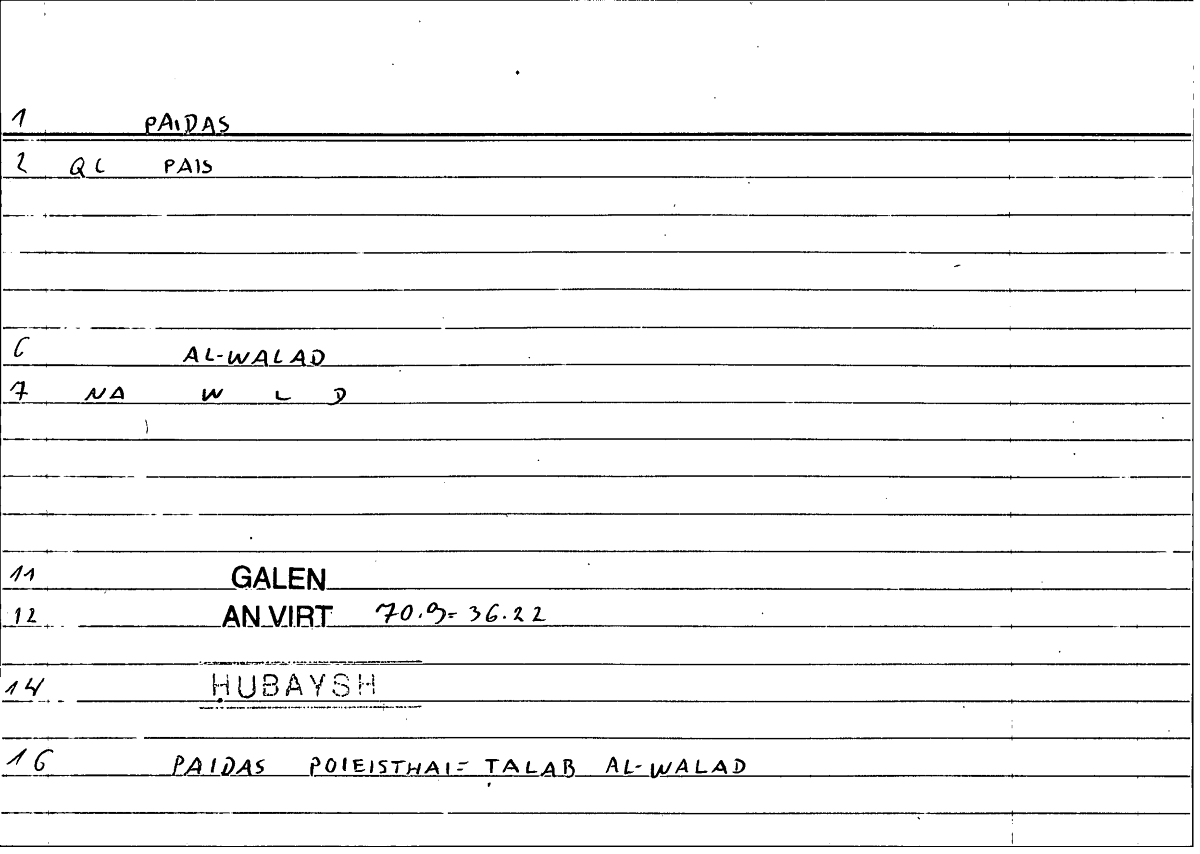 1 PAIDAS
2 QL PAIS
6 AL-WALAD
7 NA W L D
11 GALEN
12 AN VIRT 70.9=36.22
14 ḤUBAYSH
16 PAIDAS POIEISTHAI= ṬALAB AL-WALAD